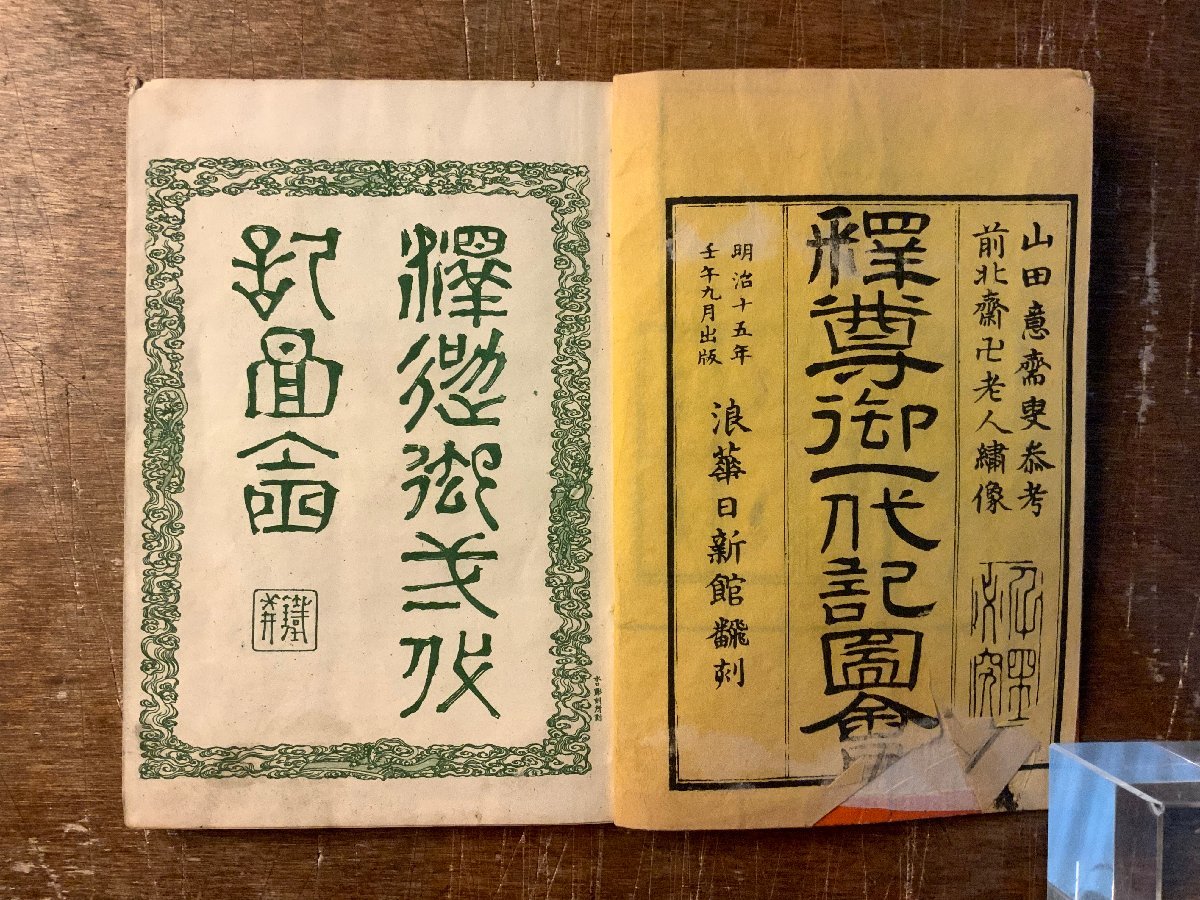 山田意齋叟叅考
前北齋卍老人繡像
釋尊御一代記圖會
明治十五年
壬午九月出版
浪華日新館飜刻
釋迦御弌代
記圖會